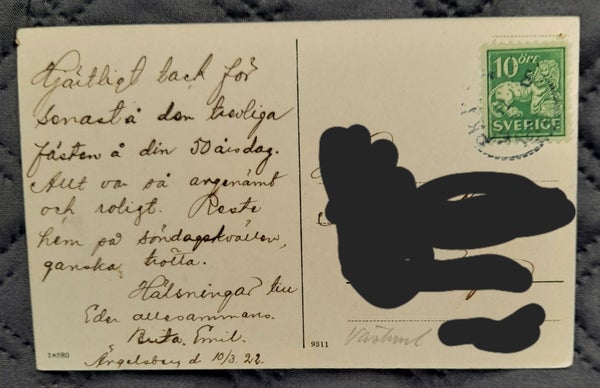 Hjärtligt tack för
senast å den trevliga
fästen å din 50 årsdag.
Allt var så angenämt
och roligt. Reste
hem på söndagskvällen,
ganska trötta.
Hälsningar till
Eder allesammans.
Emil.
Ängelsberg d 10/3 22.
10 ÖRE
SVERIGE
9311